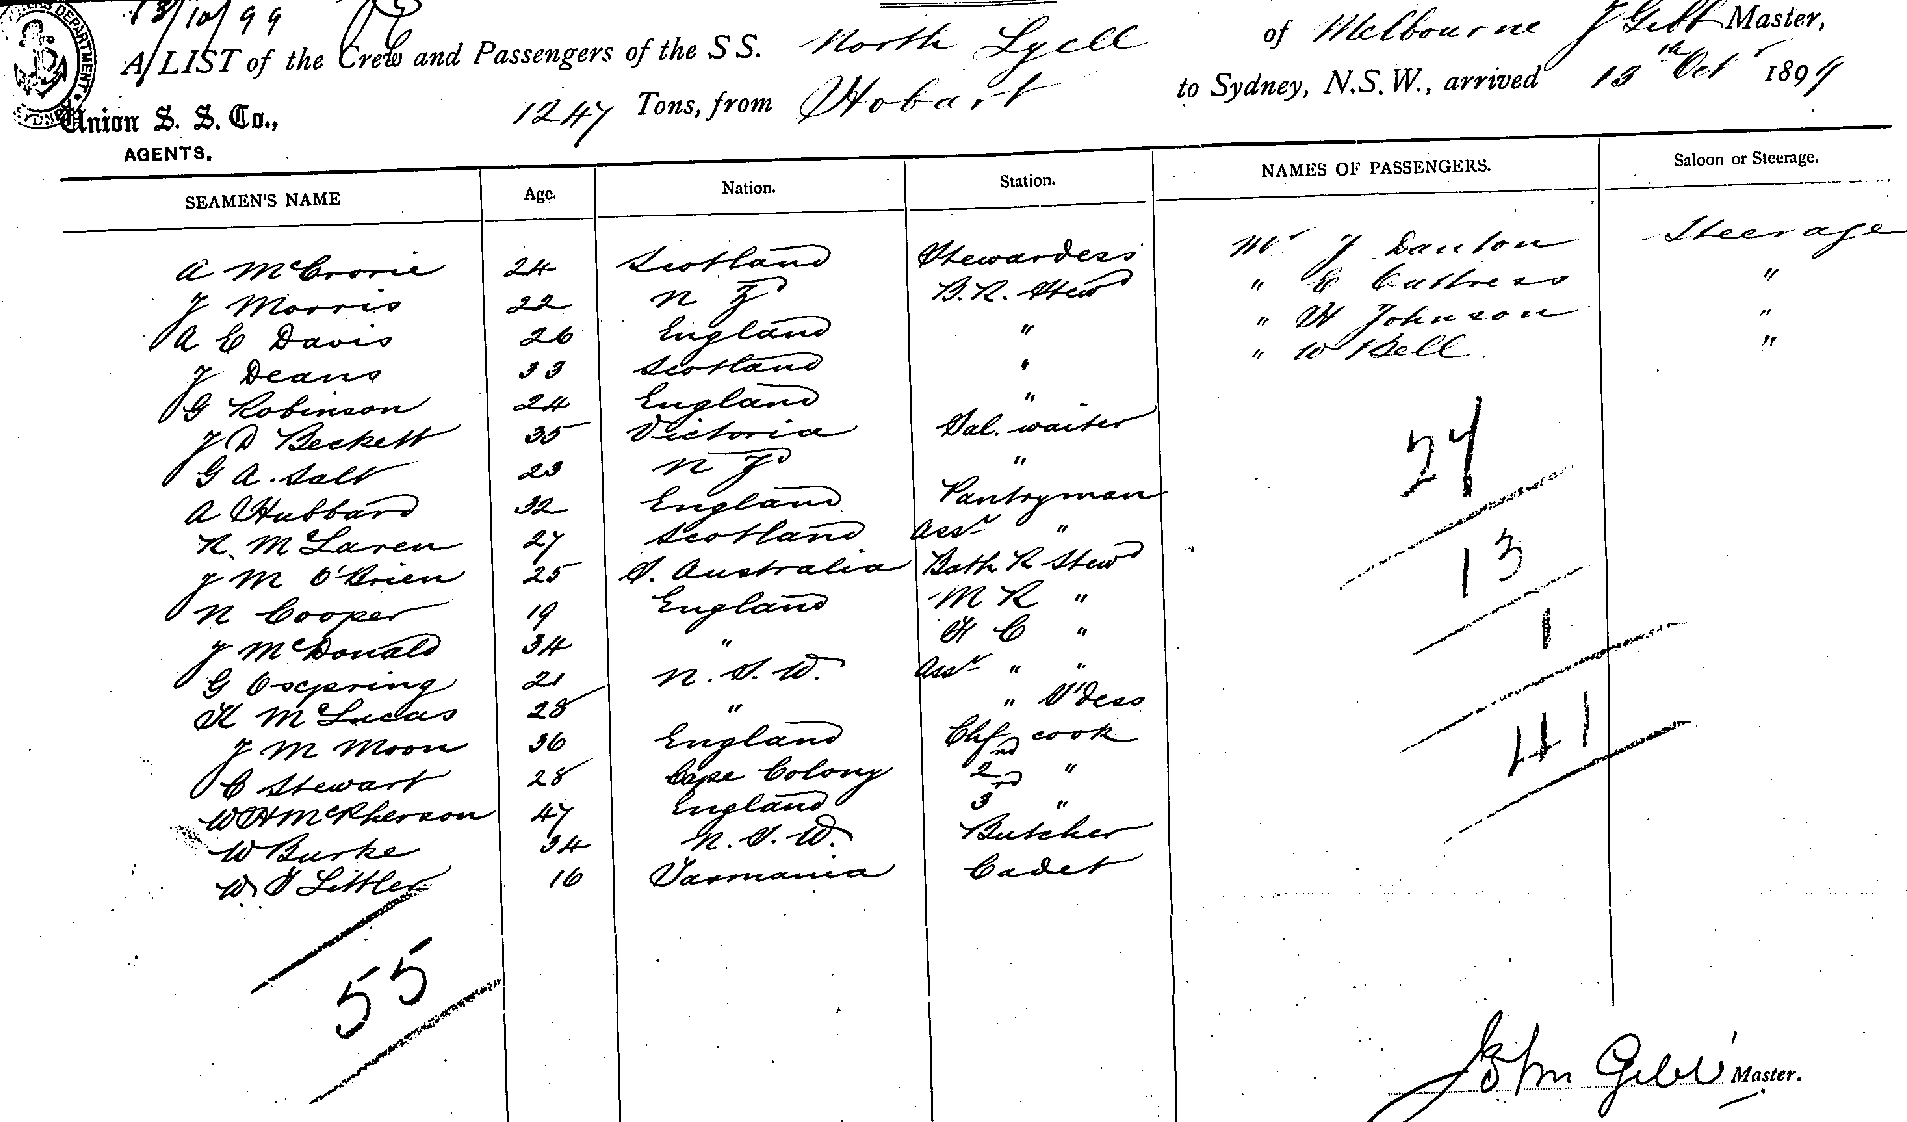 13/10/99
A LIST of the Crew and Passengers of the S S. North Lyell of Melbourne J Gibb Master,
1247 Tons, from Hobart to Sydney, N.S.W., arrived 13th Octr 1899
Union S. S. Co.,
AGENTS.
SEAMEN'S NAME Age. Nation. Station. NAMES OF PASSENGERS. Saloon or Steerage.
A McCrorie 24 Scotland Stewardess Mr J Danton Steerage
J Morris 22 N Zd B.R. Stewd " C Cuttress "
A E Davis 26 England " " H Johnson "
J Deans 33 Scotland " " W Bell "
G Robinson 24 England "
J D Beckett 35 Victoria Sal. waiter
G A. Salt 23 N Zd "
A Hubbard 32 England Pantryman
R. McLaren 27 Scotland Asst "
J M O'Brien 25 S. Australia Bath R Stewd
N Cooper 19 England M R "
J McDonald 34 " F C "
G 21 N.S.W. Asst " "
K McLucas 28 " " S'dess
J M Moon 36 England Chf cook
C Stewart 28 Cape Colony 2nd "
W H McPherson 47 England 3rd "
W Burke 34 N.S.W. Butcher
W T Littler 16 Tasmania Cadet
27
13
1
41
55
John Gibb Master.